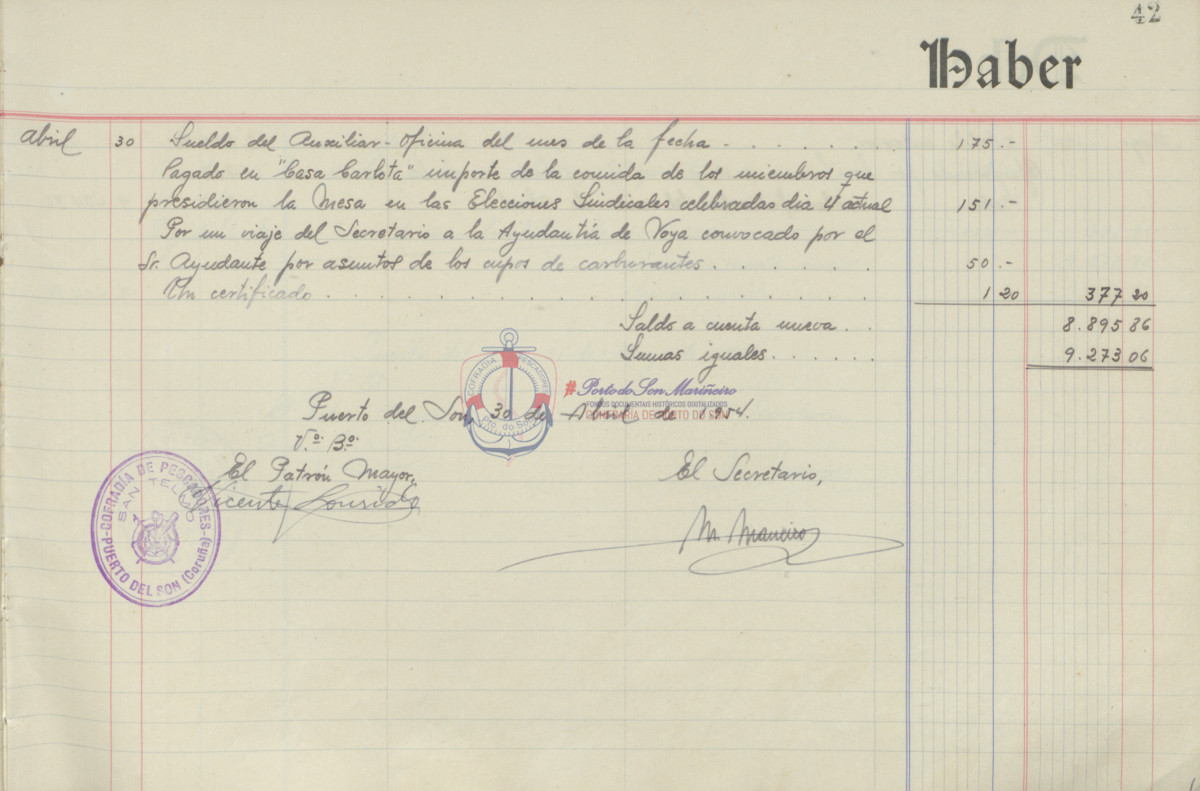 42
Haber
Abril 30 Sueldo del Auxiliar-oficina del mes de la fecha - . . . . . . . 175.-
Pagado en "Casa Carlota" importe de la comida de los miembros que
presidieron la Mesa en las Elecciones Sindicales celebradas dia 4 actual 151.-
Por un viaje del Secretario a la Ayudantía de Noya convocado por el
Sr. Ayudante por asuntos de los cupos de carburantes. . . . . . . 50.-
Un certificado. . . . . . . . . . . . . . . . 1 20 377 20
Saldo a cuenta nueva. . 8.895 86
Sumas iguales. . . . . . 9.273 06
COFRADÍA PESCADORES
Pto. do Son
#Porto do Son Mariñeiro
FONDOS DOCUMENTAIS HISTÓRICOS DIGITALIZADOS
CONFRARÍA DE PORTO DO SON
Puerto del Son, 30 de Abril de 1954.
Vº. Bº.
El Patrón Mayor, El Secretario,
Vicente M. Maneiro
COFRADÍA DE PESCADORES-
SAN TELMO
-PUERTO DEL SON (Coruña)